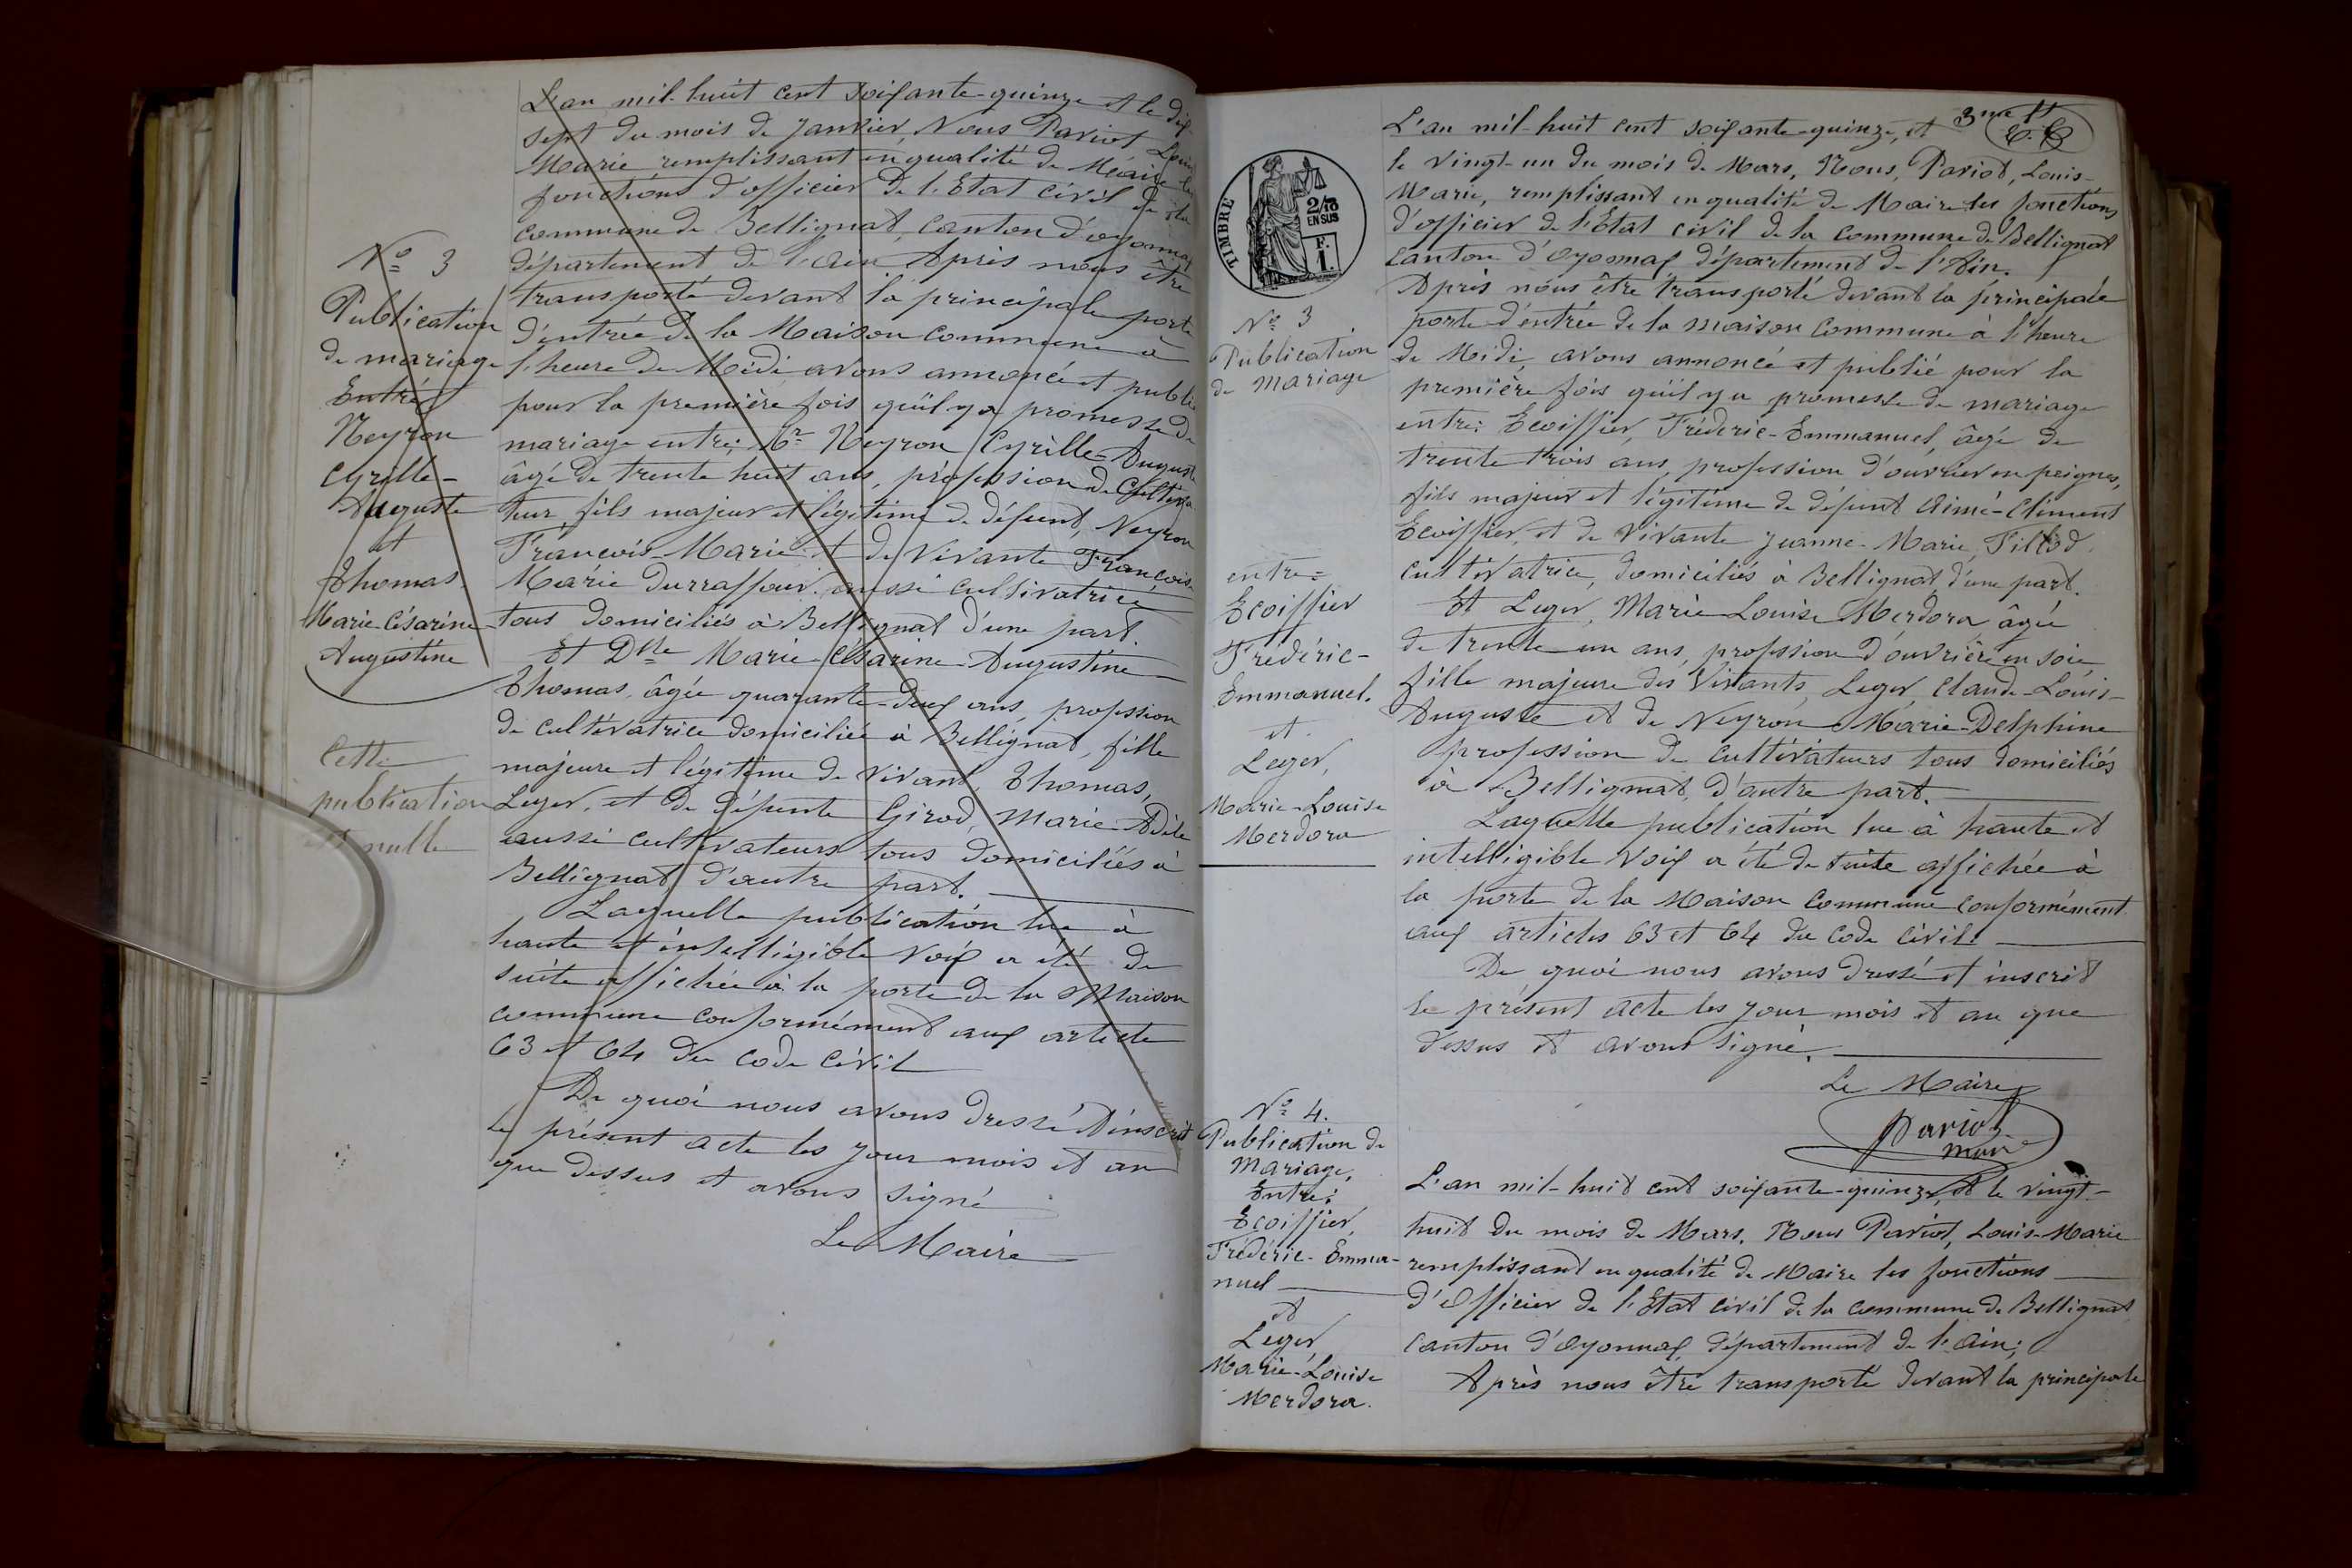 L'an mil-huit cent soixante-quinze et le dix-
sept du mois de Janvier Nous Pariot Louis
Marie remplissant en qualité de Maire les
fonctions d'officier de l'Etat civil de la
commune de Bellignat, canton d'oyonnax
département de l'Ain Après nous être
transporté devant la principale porte
d'entrée de la Maison commune à
l'heure de Midi avons annoncé et publié
pour la première fois qu'il y a promesse de
mariage entre; Mr Neyron Cyrille-Auguste
âgé de trente huit ans, profession de Cultiva
teur, fils majeur et légitime de défunt, Neyron
François-Marie et de vivante Françoise
Marie Durraffour aussi cultivatrice
tous domiciliés à Bellignat d'une part.
Et Dlle Marie-Césarine-Augustine
Thomas, âgée quarante-deux ans, profession
de cultivatrice domiciliée à Bellignat, fille
majeure et légitime de vivant, Thomas,
Leger, et de défunte Girod, Marie-Adèle
aussi cultivateurs tous domiciliés à
Bellignat d'autre part.
Laquelle publication lue à
haute et intelligible voix a été de
suite affichée à la porte de la Maison
commune conformément aux article
63 et 64 du code civil
De quoi nous avons dressé et inscrit
le présent acte les jour mois et an
que dessus et avons signé
Le Maire
No 3
Publication
de mariage
Entre
Neyron
Cyrille-
Auguste
et
Thomas
Marie-Césarine-
Augustine
Cette
publication
est nulle
3me
L'an mil-huit cent soixante-quinze, et
le vingt-un du mois de Mars, Nous, Pariot, Louis-
Marie, remplissant en qualité de Maire les fonctions
d'officier de l'Etat civil de la commune de Bellignat
canton d'oyonnax département de l'Ain.
Après nous être transporté devant la principale
porte d'entrée de la maison commune à l'heure
de Midi, avons annoncé et publié pour la
première fois qu'il y a promesse de mariage
entre: Ecoiffier, Fréderic-Emmanuel, âgé de
trente trois ans, profession d'ouvrier en peignes,
fils majeur et légitime de défunt Aimé-Clément
Ecoiffier, et de vivante Jeanne-Marie Fillod
cultivatrice, domiciliés à Bellignat, d'une part.
Et Leger, Marie Louise Merdora âgée
de trente un ans, profession d'ouvrière en soie,
fille majeure des vivants, Leger, Claude-Louis-
Auguste et de Neyron Marie-Delphine
profession de cultivateurs tous domiciliés
à Bellignat, d'autre part.
Laquelle publication lue à haute et
intelligible voix a été de suite affichée à
la porte de la Maison commune conformément
aux articles 63 et 64 du code civil.
De quoi nous avons dressé et inscrit
le présent acte les jour mois et an que
dessus et avons signé.
Le Maire
Pariot
maire
TIMBRE
2/10
EN SUS
F.
1.
No 3
Publication
de mariage
entre=
Ecoiffier
Frédéric-
Emmanuel.
et
Leger,
Marie-Louise
Merdora
L'an mil-huit cent soixante-quinze, et le vingt-
huit du mois de Mars. Nous Pariot, Louis-Marie
remplissant en qualité de Maire les fonctions
d'Officier de l'Etat civil de la commune de Bellignat
canton d'Oyonnax, département de l'Ain;
Après nous être transporté devant la principale
No 4.
Publication de
mariage,
Entre:
Ecoiffier,
Frédéric-Emma-
nuel
et
Leger,
Marie-Louise
Merdora.